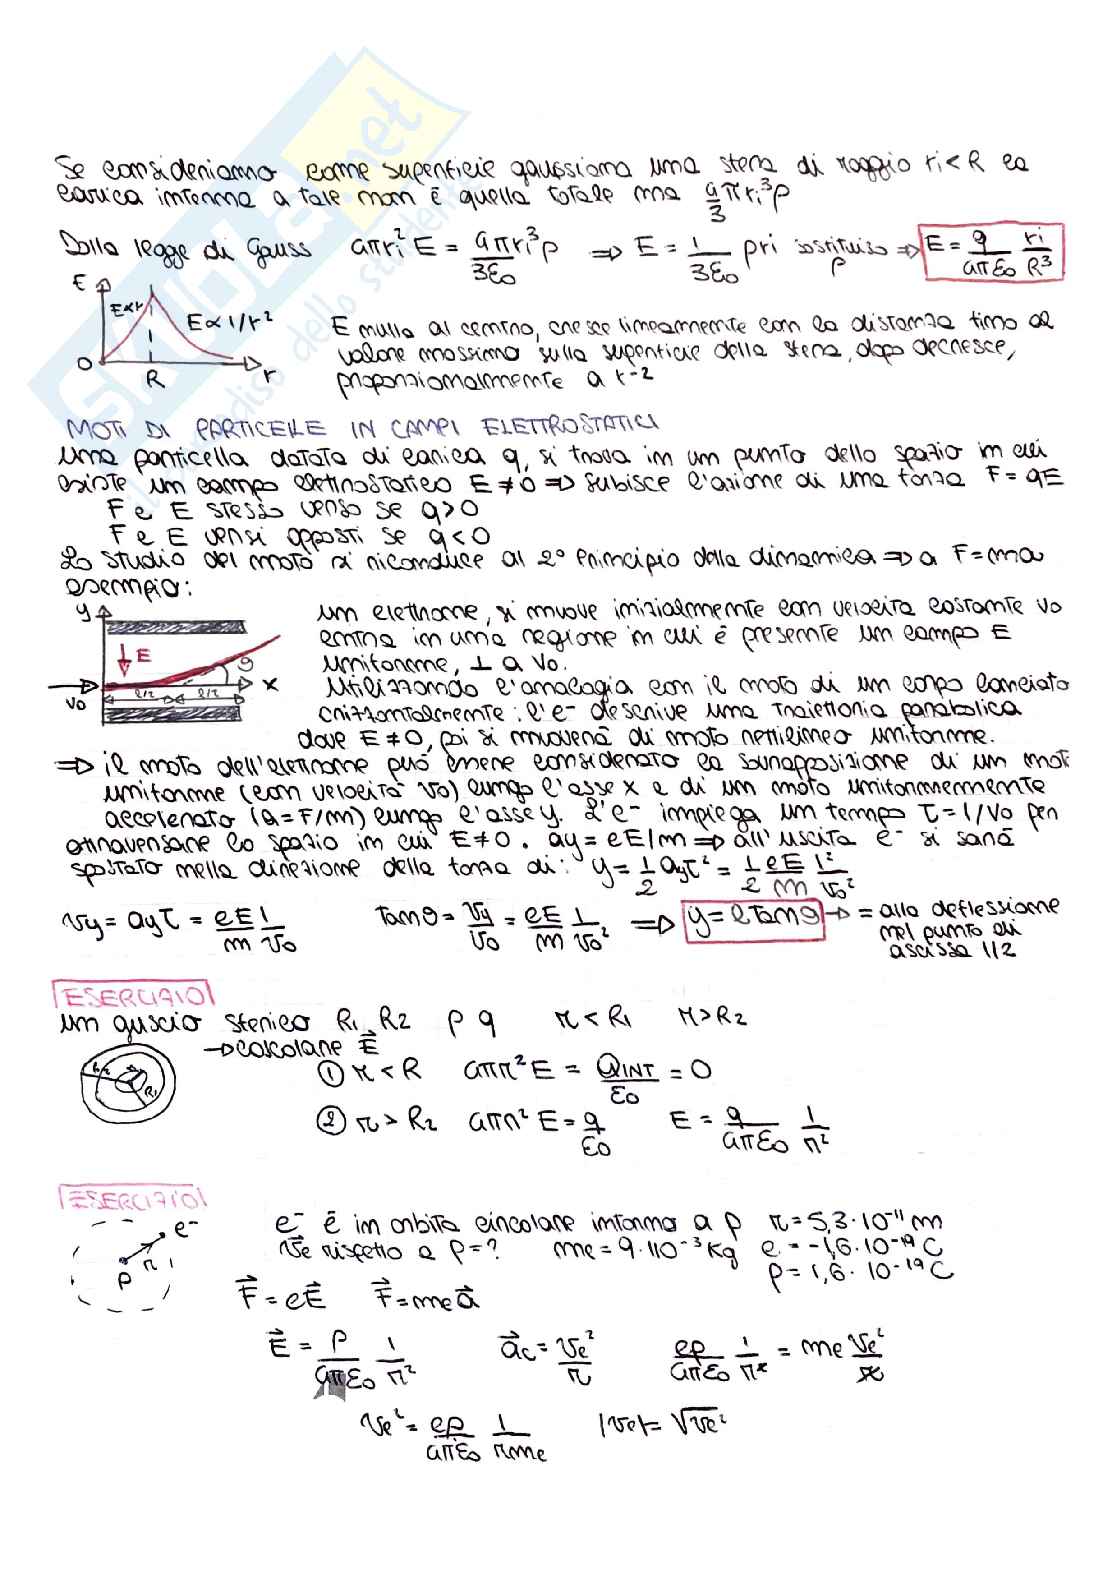 Se consideriamo come superficie gaussiana una sfera di raggio ri < R la
carica interna a tale non è quella totale ma 4/3 πri³ρ
Dalla legge di Gauss 4πri² E = 4πri³ρ/3ε0 ⇒ E = 1/3ε0 ρri sostituisco ρ ⇒ E = q/4πε0 ri/R³
E
E∝r
E∝1/r²
O R r
E nulla al centro, cresce linearmente con la distanza fino al
valore massimo sulla superficie della sfera, dopo decresce,
proporzionalmente a r⁻²
MOTI DI PARTICELLE IN CAMPI ELETTROSTATICI
una particella dotata di carica q, si trova in un punto dello spazio in cui
esiste un campo elettrostatico E ≠ 0 ⇒ subisce l'azione di una forza F = qE
F e E stesso verso se q>0
F e E versi opposti se q<0
Lo studio del moto si riconduce al 2° Principio della dinamica ⇒ a F=ma
esempio:
y
E
θ
x
l/2 l/2
v0
un elettrone, si muove inizialmente con velocità costante v0
entra in una regione in cui è presente un campo E
uniforme, ⊥ a v0.
Utilizzando l'analogia con il moto di un corpo lanciato
orizzontalmente: l'e⁻ descrive una traiettoria parabolica
dove E≠0, poi si muoverà di moto rettilineo uniforme.
⇒ il moto dell'elettrone può essere considerato la sovrapposizione di un moto
uniforme (con velocità v0) lungo l'asse x e di un moto uniformemente
accelerato (a=F/m) lungo l'asse y. L'e⁻ impiega un tempo τ=l/v0 per
attraversare lo spazio in cui E≠0. ay = eE/m ⇒ all'uscita e⁻ si sarà
spostato nella direzione della forza di: y = 1/2 ayτ² = 1/2 eE/m l²/v0²
vy = ayτ = eE/m l/v0 tanθ = vy/v0 = eE/m l/v0² ⇒ y = l tanθ → = alla deflessione
nel punto di
ascissa l/2
ESERCIZIO
un guscio sferico R1 R2 ρ q r < R1 r > R2
→ calcolare E⃗
R2 R1
① r < R 4πr² E = QINT/ε0 = 0
② r > R2 4πr² E = q/ε0 E = q/4πε0 1/r²
ESERCIZIO
e⁻
r
p
e⁻ è in orbita circolare intorno a p r = 5,3·10⁻¹¹ m
v⃗e rispetto a p = ? me = 9·110⁻³ Kg e = -1,6·10⁻¹⁹ C
p = 1,6·10⁻¹⁹ C
F⃗ = eE⃗ F⃗ = me a⃗
E⃗ = p/4πε0 1/r² a⃗c = ve²/r ep/4πε0 1/r² = me ve²/r
ve² = ep/4πε0 1/rme |ve| = √ve²